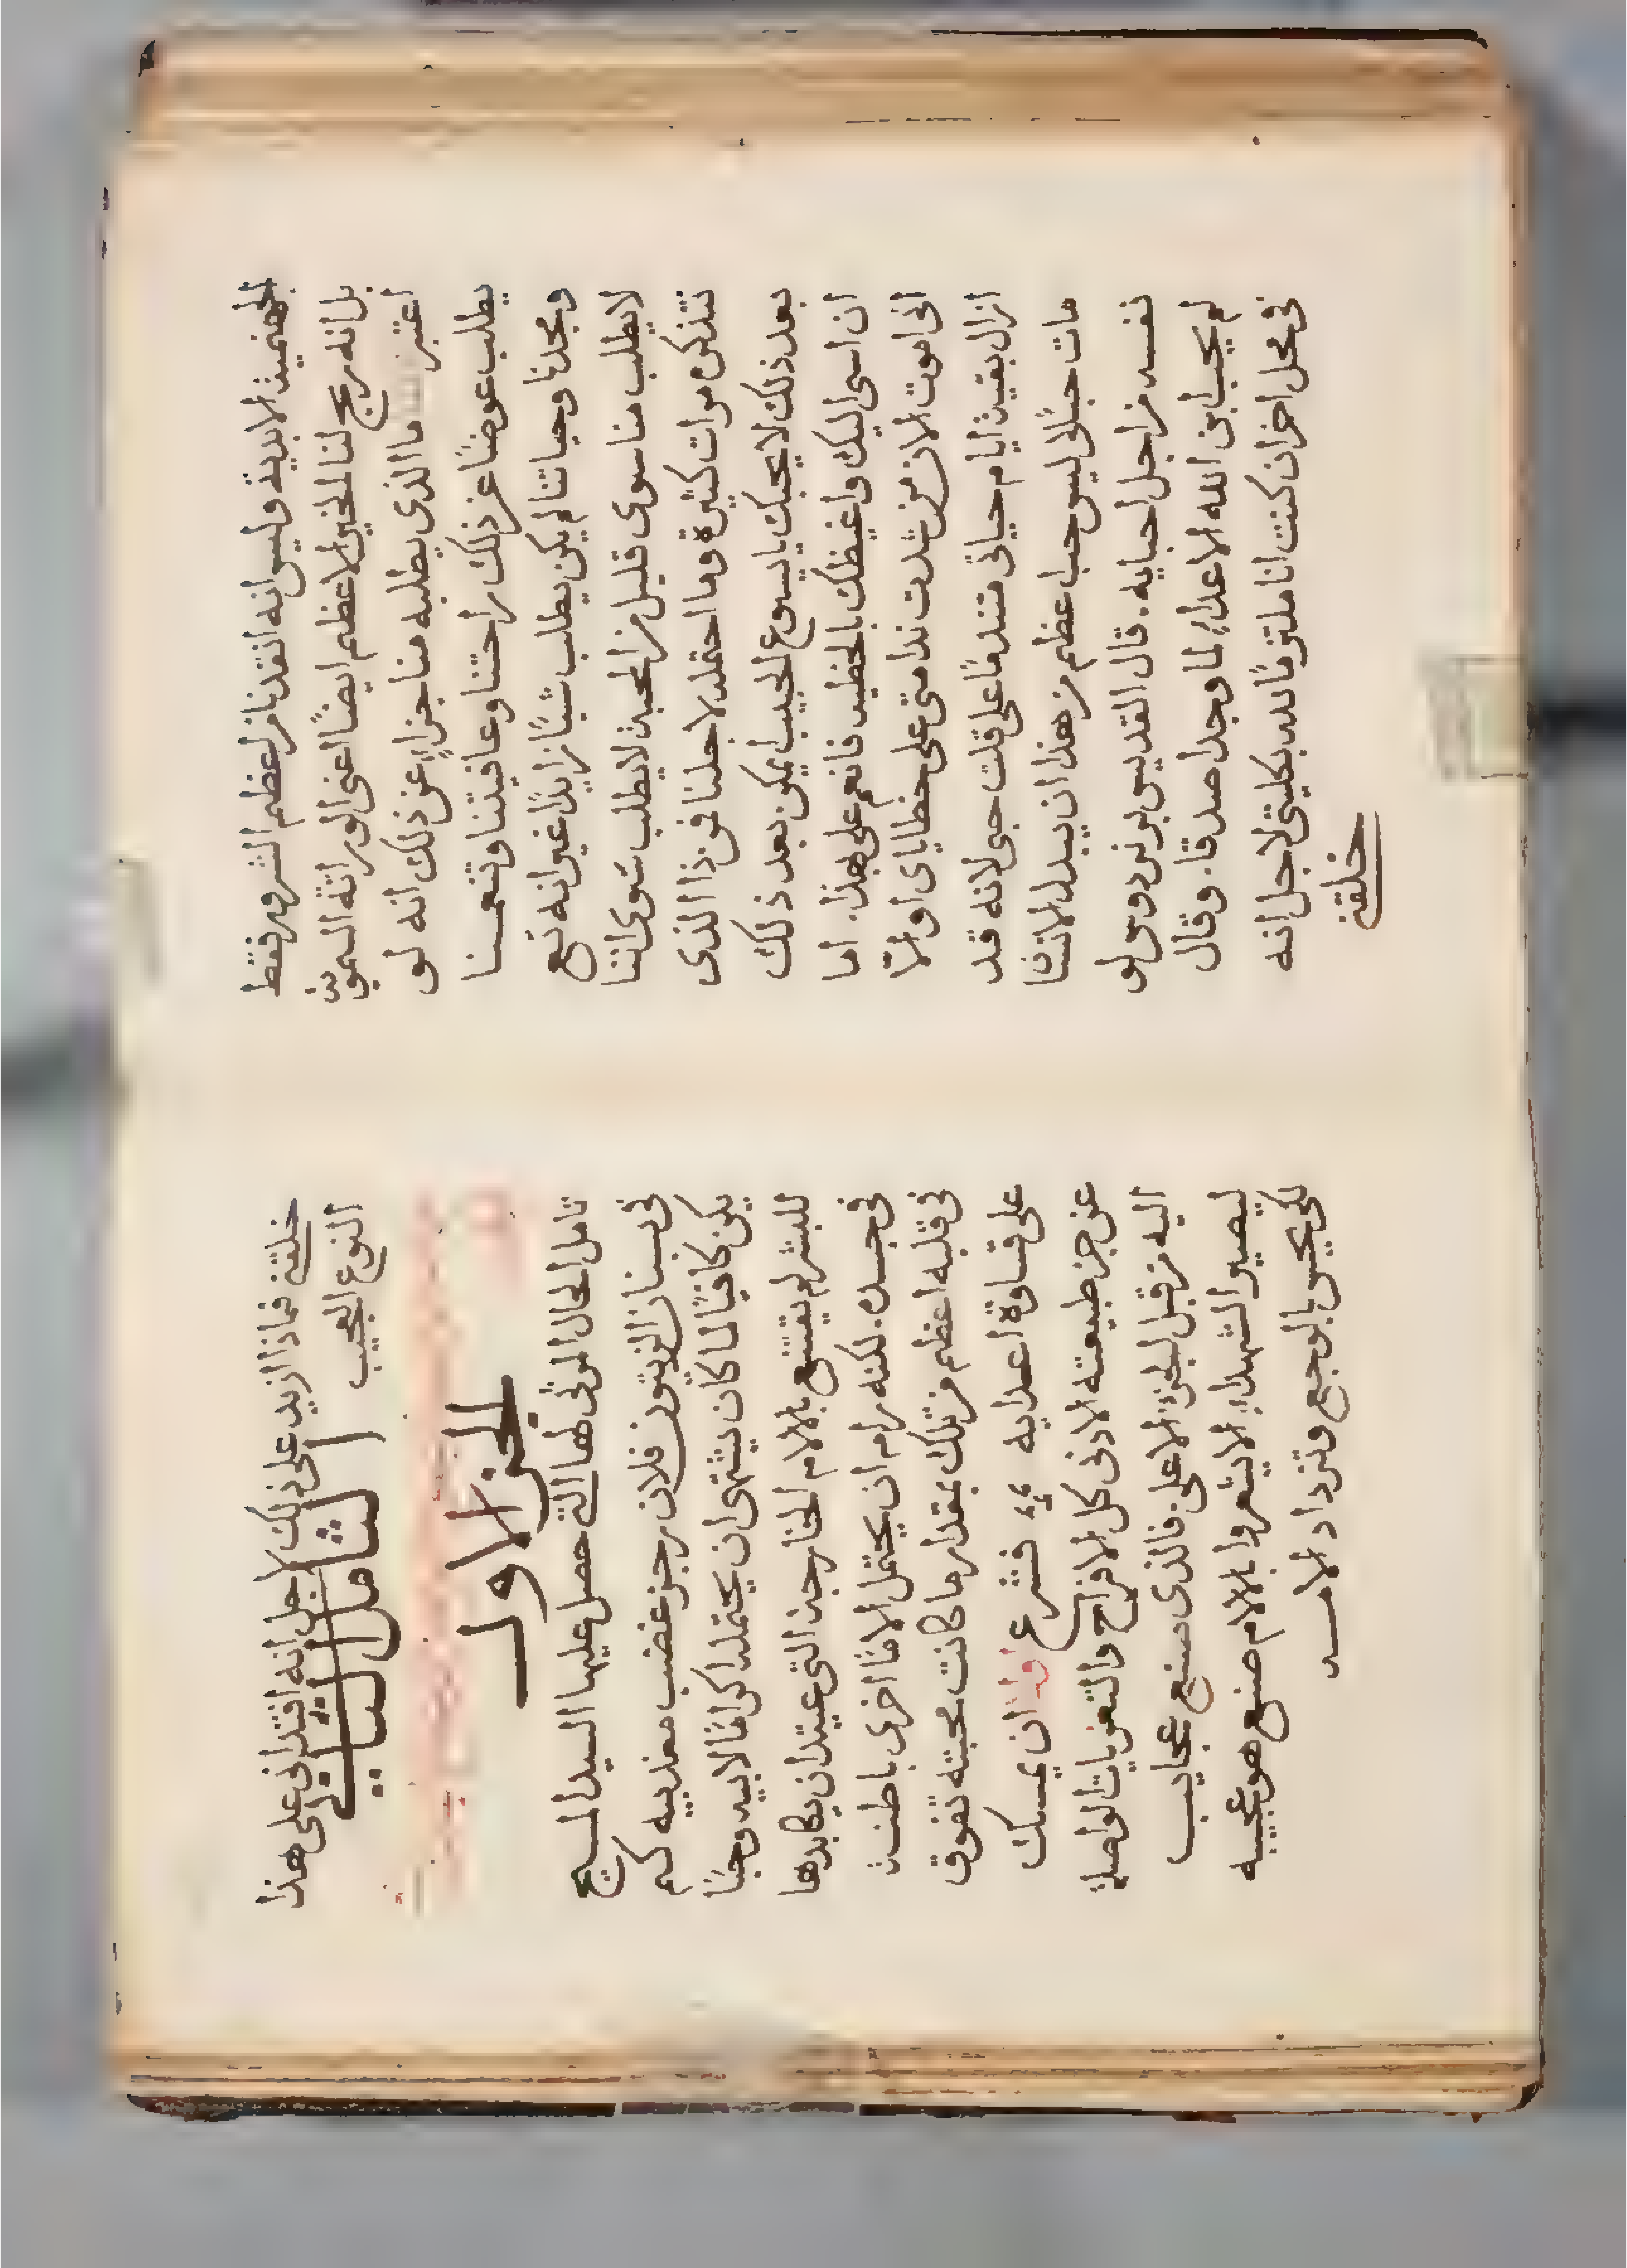 الجهنمية الابدية وليس انه انقدنا من اعظم الشرور فقط
بل انه ربح لنا الخير الاعظم ايضًا اعني الوراثة السموية
اعتبر ما الذي يطلبه منا جزاءٍ عن ذلك انه لو
يطلب عوضًا عن ذلك راحتنا وعافيتنا وتنعمنا
ومجدنا وحياتنا لم يكن يطلب شيًا زايدًا غير انه تع
لا يطلب منا سوى قليل من المحبة لا يطلب سوى اننا
نتذكر مرات كثيرة وما احتمله لاجلنا فمن ذا الذي
بعد ذلك لا يحبك يا يسوع الحبيب ايمكن بعد ذلك
ان اسى اليك واغيظك بالخطيه فانعم علي بهذا. اما
اني اموت الان من شدت ندامتي على خطاياي او الّا
ازال بقية ايام حياتي متندمًا على قلت حبي لانه قد
مات حبًا لي ليس حب اعظم من هذا ان يبدل الانسان
نفسه من اجل احبايه. قال القديس برنردوس لو
لم يحب ابن الله الاعداء لما وجد اصدقا. وقال
في محل اخر ان كنت انا ملتزمًا له بكليتي لاجل انه
خلقني
خلقني فماذا ازيد على ذلك لاجل انه افتداني على هذا
النوع العجيب
التامل الثاني
الجز الاول
تامل الحال المرثى لها التي حصل عليها السيد المسيح
في بستان الزيتون فلان رجز غضب معذبيه كم
يكن كافيًا لما كان يشتهي ان يحتمله اكرامًا لابيه وحبًا
للبشر لم يقتنع بالالام الخارجة التي عيتد ان يكابدها
في جسده. لكنه رام ان يحتمل الامًا اخرى باطنة
في قلبه اعظم من تلك بمقدار ما كانت محبته تفوق
على قساوة اعدايه فشرع اولا ان يمسك
عن جز طبيعته الادنى كل الافراح والتعزيات الواصلة
اليه من قبل الجز الاعلى فالذي صنع عجايب
ليصير الشهداء الا يشعروا بالالام صنع هو عجيبه
لكي يحس بالوجع وتزداد الامه